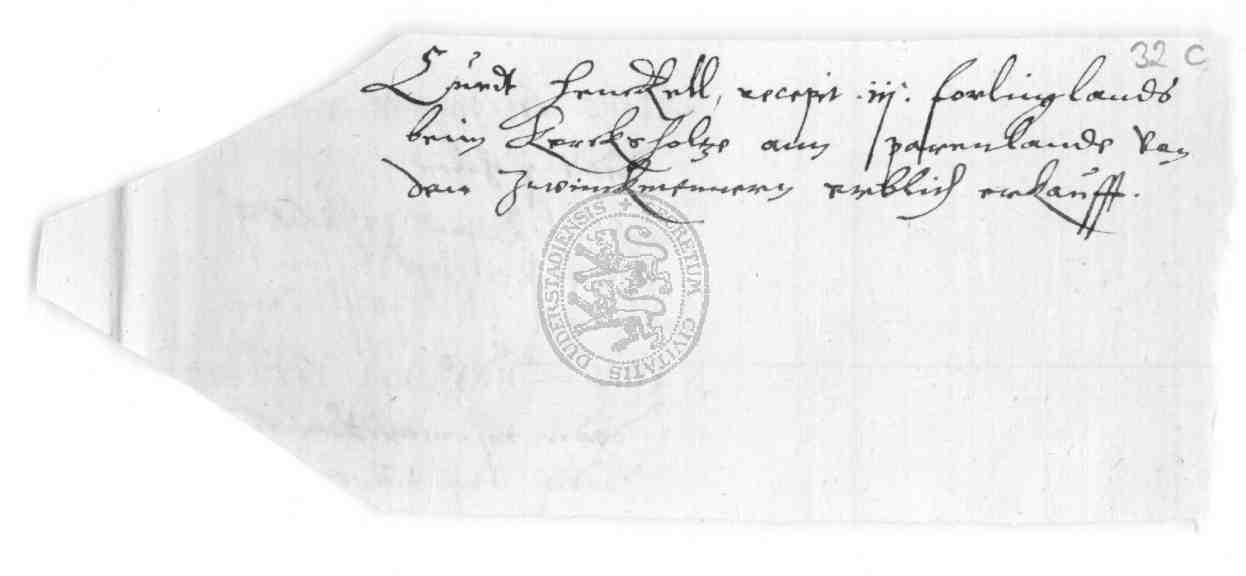 32 C
Curdt Henckell, recepit .iij. forlinglands
beim Kercksholtze am parenlande Van
den Zwinckmennern erblich erkaufft.
SECRETUM CIVITATIS DUDERSTADIENSIS